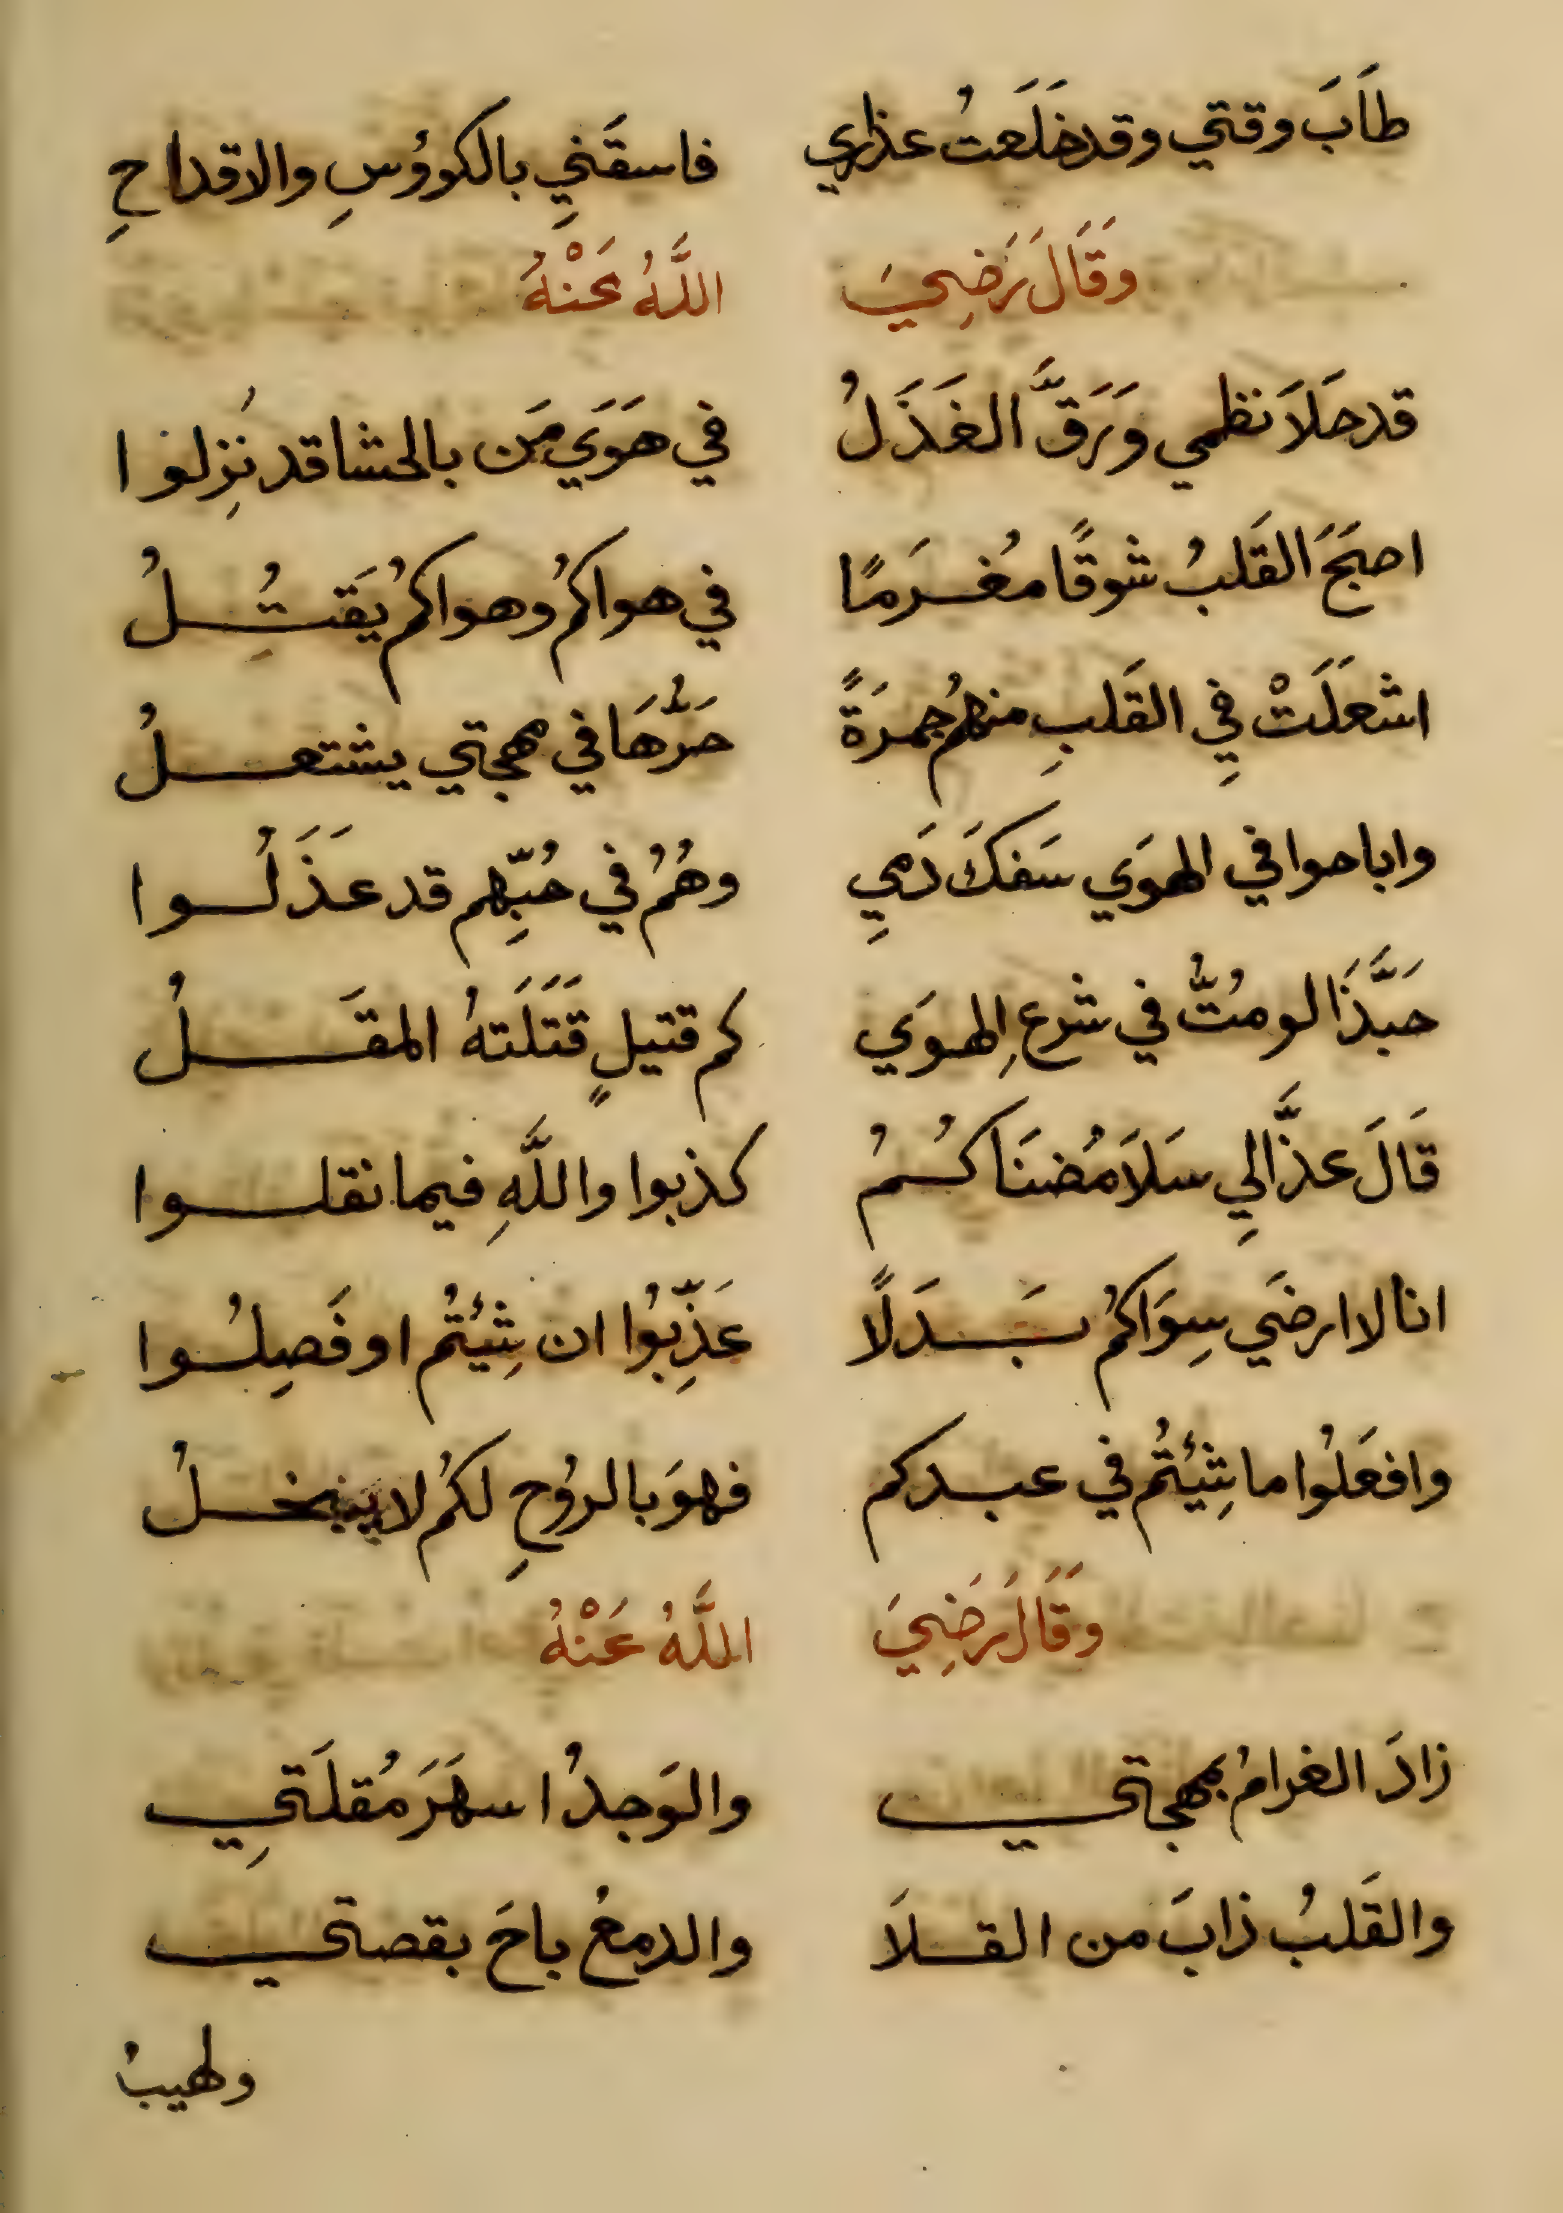 طَابَ وقتي وقد خَلَعتُ عذاري فاسقَنِي بالكووُسِ والاقداحِ
وَقَالَ رَضِيَ اللَّهُ عَنْهُ
قد حَلاَ نظمي وَرَقَّ الغَذَلُ في هَوَي مَن بالحشا قد نُزِلوا
اصبَحَ القَلبُ شوقًا مُغرَمًا في هواكمُ وهواكمُ يَقتُلُ
اشعَلَتْ فِي القَلبِ منهمُ جمرَةً حَرُّهَا في مهجتي يشتعلُ
واباحوا في الهوَي سَفكَ دَمِي وهُمُ في حُبِّهم قد عَذَلُوا
حَبَّذَا لو مُتُّ في شرعِ الهوَي كم قتيلٍ قَتَلَتهُ المقَلُ
قَالَ عذَّالِي سَلاَ مُضنَاكُمُ كذبوا واللَّهِ فيما نقلوا
انا لا ارضَي سِوَاكمُ بَدَلًا عَذِّبُوا ان شِئتُم او فَصِلُوا
وافعَلُوا ما شِئتُم في عبدكم فهوَ بالرُوحِ لكمُ لا يبخلُ
وَقَالَ رَضِيَ اللَّهُ عَنْهُ
زادَ الغرامُ بمهجتي والوَجدُ اسهَرَ مُقلَتِي
والقَلبُ ذابَ من القلاَ والدمعُ باحَ بقصتي
ولهيبُ